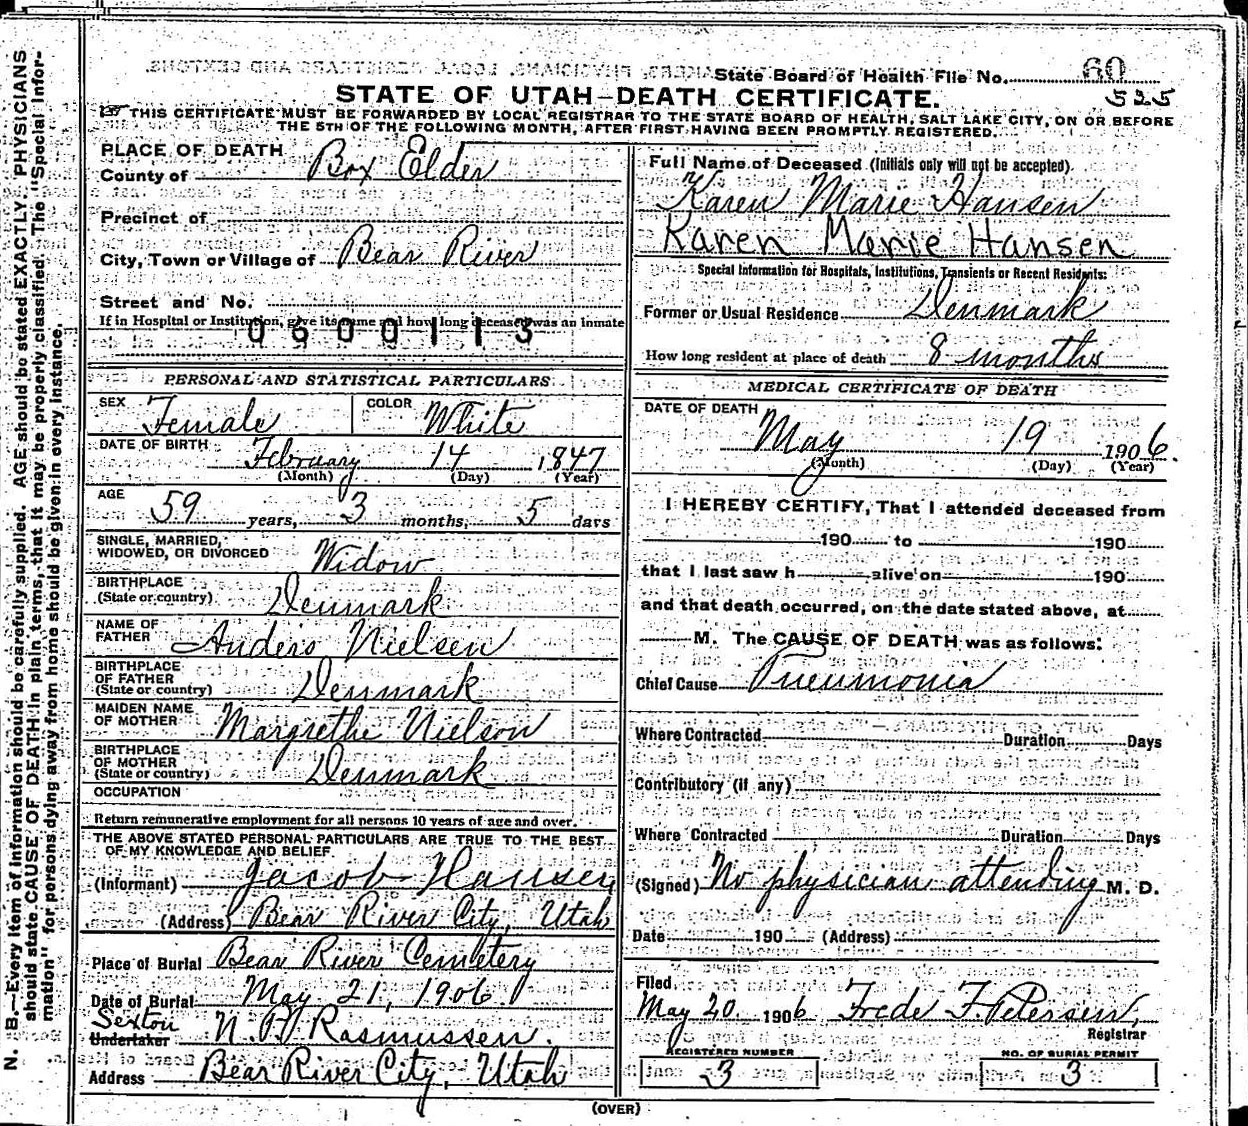 State Board of Health File No. 60
525
STATE OF UTAH—DEATH CERTIFICATE.
THIS CERTIFICATE MUST BE FORWARDED BY LOCAL REGISTRAR TO THE STATE BOARD OF HEALTH, SALT LAKE CITY, ON OR BEFORE
THE 5TH OF THE FOLLOWING MONTH, AFTER FIRST HAVING BEEN PROMPTLY REGISTERED.
PLACE OF DEATH
County of Box Elder
Precinct of
City, Town or Village of Bear River
Street and No.
If in Hospital or Institution, give its name and how long deceased was an inmate
0600113
PERSONAL AND STATISTICAL PARTICULARS
SEX Female COLOR White
DATE OF BIRTH February 14 1847
(Month) (Day) (Year)
AGE 59 years, 3 months, 5 days
SINGLE, MARRIED,
WIDOWED, OR DIVORCED Widow
BIRTHPLACE
(State or country) Denmark
NAME OF
FATHER Anders Nielsen
BIRTHPLACE
OF FATHER
(State or country) Denmark
MAIDEN NAME
OF MOTHER Margrethe Nielson
BIRTHPLACE
OF MOTHER
(State or country) Denmark
OCCUPATION
Return remunerative employment for all persons 10 years of age and over.
THE ABOVE STATED PERSONAL PARTICULARS ARE TRUE TO THE BEST
OF MY KNOWLEDGE AND BELIEF
(Informant) Jacob Hansen
(Address) Bear River City, Utah
Place of Burial Bear River Cemetery
Date of Burial May 21, 1906
Sexton
Undertaker N. P. Rasmussen.
Address Bear River City, Utah
Full Name of Deceased (Initials only will not be accepted).
Karen Marie Hansen
Karen Marie Hansen
Special Information for Hospitals, Institutions, Transients or Recent Residents:
Former or Usual Residence Denmark
How long resident at place of death 8 months
MEDICAL CERTIFICATE OF DEATH
DATE OF DEATH
May 19 1906.
(Month) (Day) (Year)
I HEREBY CERTIFY, That I attended deceased from
190 to 190
that I last saw h alive on 190
and that death occurred, on the date stated above, at
M. The CAUSE OF DEATH was as follows:
Chief Cause Pneumonia
Where Contracted Duration Days
Contributory (if any)
Where Contracted Duration Days
(Signed) No physician attending M. D.
Date 190 (Address)
Filed
May 20 1906 Frede F. Petersen,
Registrar
REGISTERED NUMBER
3
NO. OF BURIAL PERMIT
3
(OVER)
N. B.—Every item of information should be carefully supplied. AGE should be stated EXACTLY. PHYSICIANS
should state CAUSE OF DEATH in plain terms, that it may be properly classified. The "Special Infor-
mation" for persons dying away from home should be given in every instance.